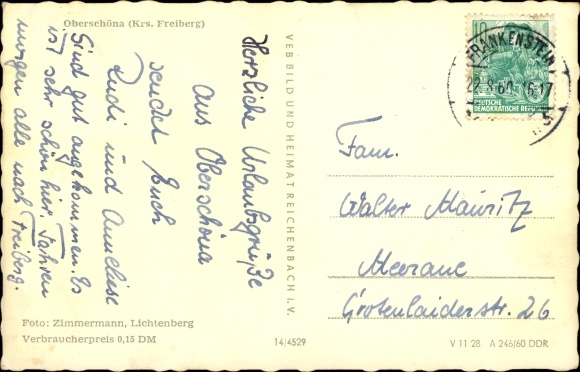 Oberschöna (Krs. Freiberg)
Herzliche Urlaubsgrüße
aus Oberschöna
sendet Euch
Rudi und Anneliese
Sind gut angekommen. Es
ist sehr schön hier. Fahren
morgen alle nach Freiberg.
Foto: Zimmermann, Lichtenberg
Verbraucherpreis 0,15 DM
VEB BILD UND HEIMAT REICHENBACH I. V.
14/4529
10
DEUTSCHE
DEMOKRATISCHE REPUBLIK
FRANKENSTEIN
22.8.60
Fam.
Walter Mauritz
Meerane
Grotenlaiderstr. 26
V 11 28 A 246/60 DDR